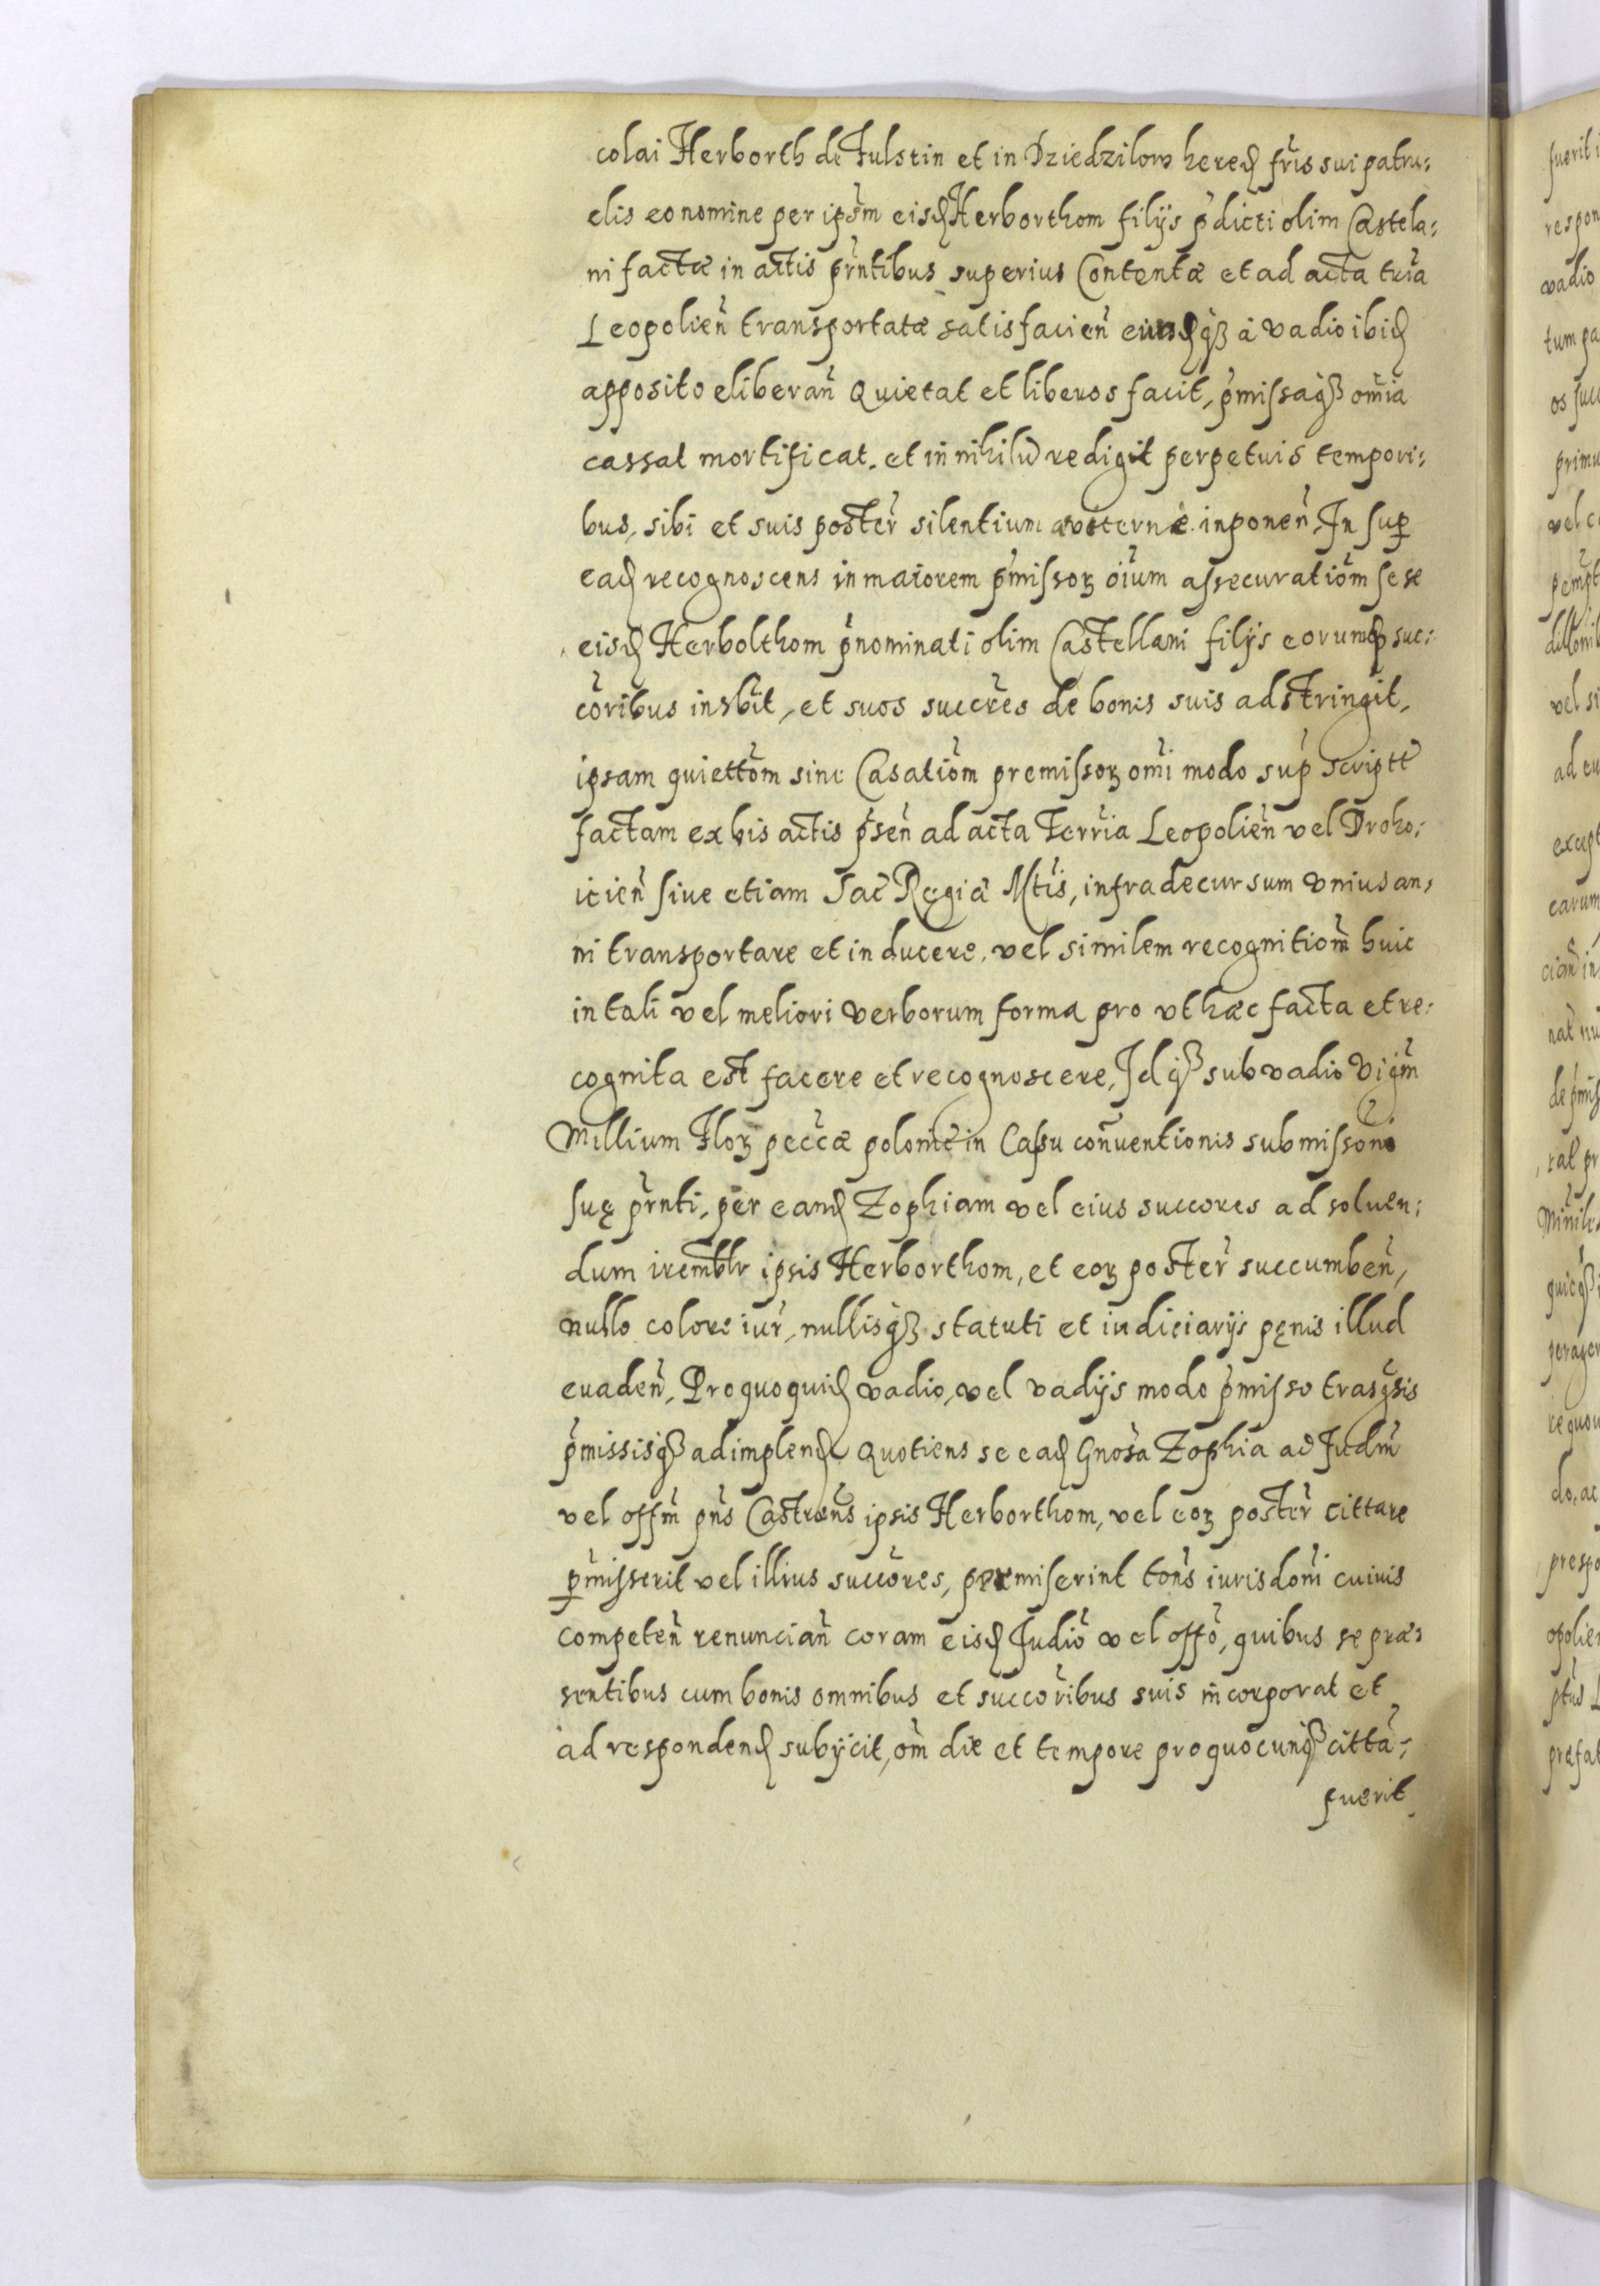 colai Herborth de Fulstin et in Dziedzilow hered fris sui patru:
elis eo nomine per ipsm eisd Herborthom filijs pdicti olim Castela:
ni factæ in actis prntibus superius Contentæ et ad acta tria
Leopolien transportatæ satisfacien eiusdqȝ à vadio ibid
apposito eliberan Quietat et liberos facit, pmissaqȝ omia
cassat mortificat. et in nihilū redigit perpetuis tempori:
bus, sibi et suis poster silentium æviternè inponen. In sup
ead recognoscens in maiorem pmissoȝ oium assecuratiom sese
eisd Herbolthom pnominati olim Castellani filijs eorumqȝ suc:
coribus insbit, et suos succres de bonis suis adstringit,
ipsam quiettom sine Casatiom premissoȝ omi modo sup scriptt
factam ex his actis psen ad acta Terria Leopolien vel Droho:
icien sive etiam Sac Regiæ Mtis, infra decursum vnius an,
ni transportare et in ducere, vel similem recognitiom huic
in tali vel meliori verborum forma pro vt hæc facta et re:
cognita est facere et recognoscere, Id qȝ sub vadio Vigm
Millium Floȝ peccæ polonie in Casu conventionis submissonis
suę prnti, per eand Zophiam vel eius succores ad soluen:
dum iremblr ipsis Herborthom, et eoȝ poster succumben,
nullo colore iur, nullisqȝ statuti et iudiciarijs pęnis illud
euaden, Pro quoquid vadio, vel vadijs modo pmisso trasgsis
pmissisqȝ adimplend Quotiens se ead Gnosa Zophia ad Iudm
vel offm pns Castræns ipsis Herborthom, vel eoȝ poster cittare
pmisserit vel illius succores, permiserint tons iurisdomi cuiuis
competen renuncian coram eisd Iudio vel offo, quibus se præ:
sentibus cum bonis omnibus et succoribus suis incorporat et
ad respondend subijcit, om die et tempore pro quocunqȝ citta:
fuerit